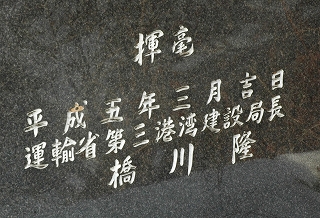 揮毫
平成五年三月吉日
運輸省第三港湾建設局長
橋川隆